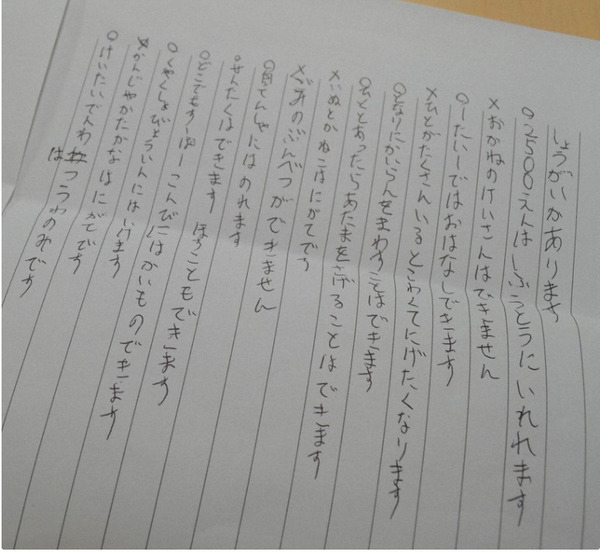 しょうがいかあります
○2500えんは しぶうとうに いれれます
×おかねのけいさんはできません
○一たい一ではおはなしできます
×ひとがたくさんいるとこわくてにげたくなります
○となりにかいらんをまわすことはできます
○ひととあったらあたまをさげることはできます
×いぬとか ねこはにがてです
ぐみのぶんべつができません
てんしゃにはのれます
○せんたくはできます ほすこともできます
○どこでもすーぱー こんびにはかいものできます
○くやくしょびょういんにはいけます
×かんじやかたかなはにがてです
○けいたいでんわは つうわのみです